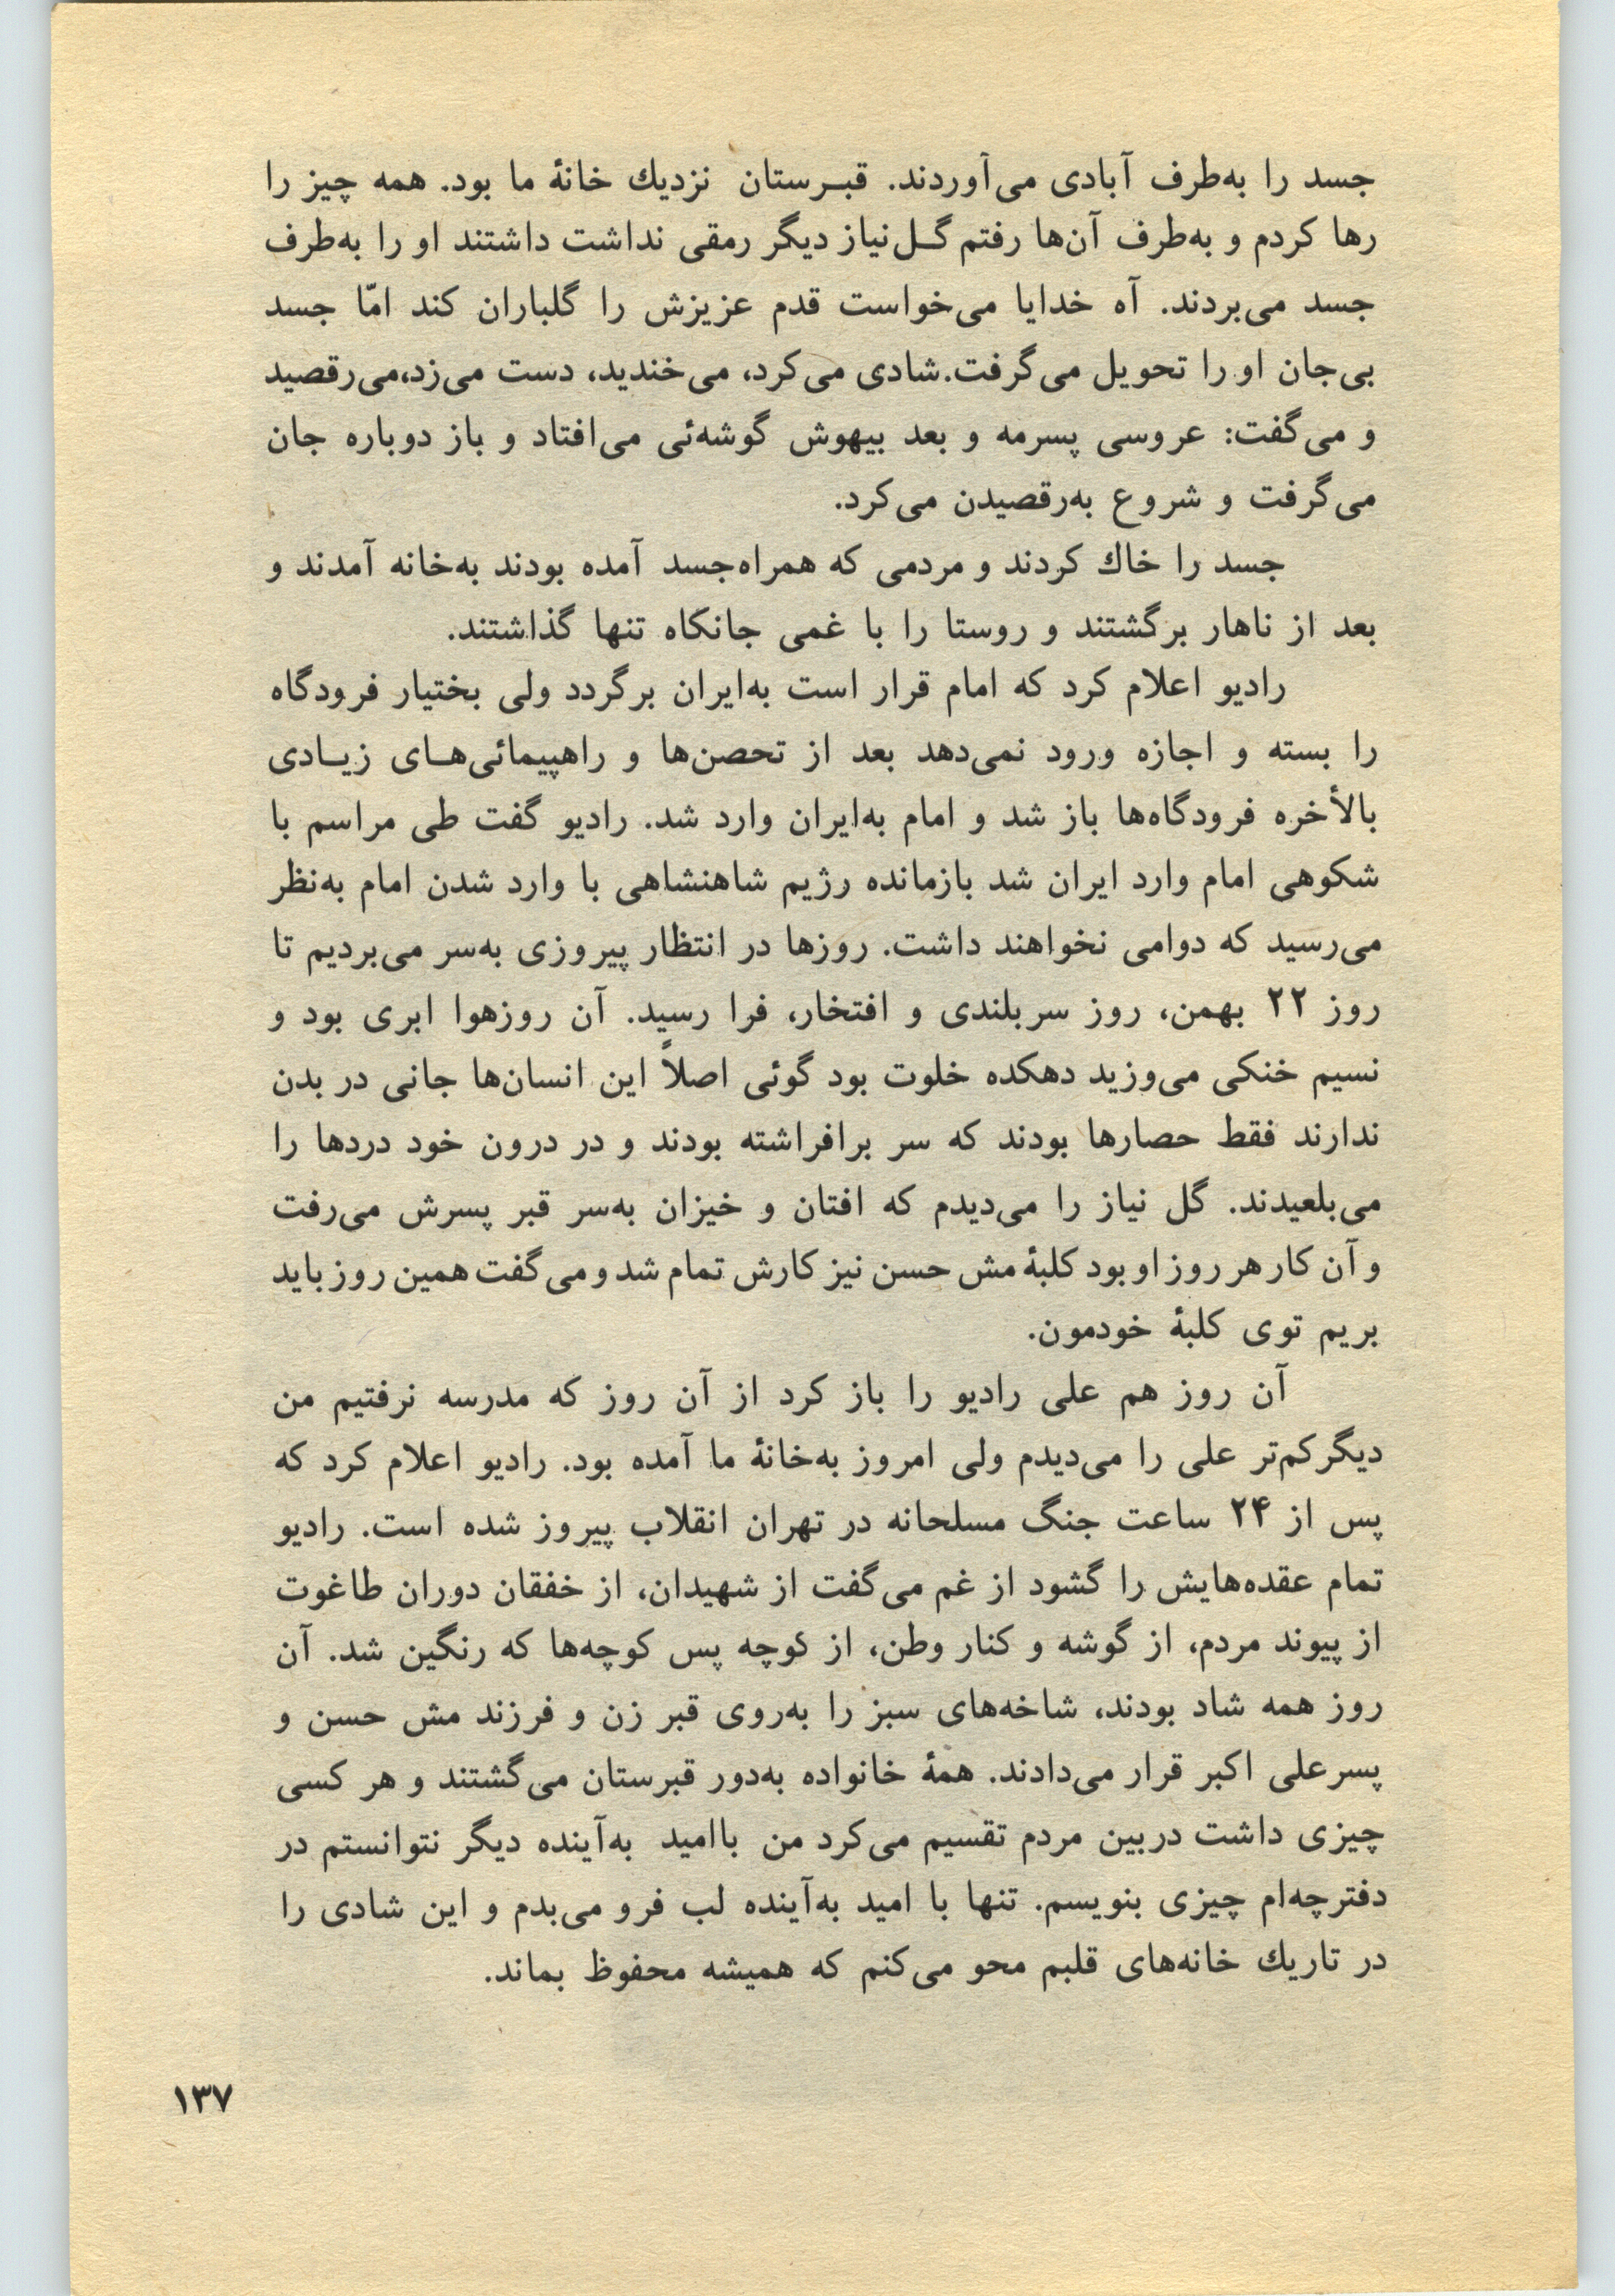 جسد را به‌طرف آبادی می‌آوردند. قبـرستان نزدیك خانهٔ ما بود. همه چیز را
رها کردم و به‌طرف آن‌ها رفتم گـل‌نیاز دیگر رمقی نداشت داشتند او را به‌طرف
جسد می‌بردند. آه خدایا می‌خواست قدم عزیزش را گلباران کند امّا جسد
بی‌جان او را تحویل می‌گرفت.شادی می‌کرد، می‌خندید، دست می‌زد،می‌رقصید
و می‌گفت: عروسی پسرمه و بعد بیهوش گوشه‌ئی می‌افتاد و باز دوباره جان
می‌گرفت و شروع به‌رقصیدن می‌کرد.
جسد را خاك کردند و مردمی که همراه‌جسد آمده بودند به‌خانه آمدند و
بعد از ناهار برگشتند و روستا را با غمی جانکاه تنها گذاشتند.
رادیو اعلام کرد که امام قرار است به‌ایران برگردد ولی بختیار فرودگاه
را بسته و اجازه ورود نمی‌دهد بعد از تحصن‌ها و راهپیمائی‌هـای زیـادی
بالأخره فرودگاه‌ها باز شد و امام به‌ایران وارد شد. رادیو گفت طی مراسم با
شکوهی امام وارد ایران شد بازمانده رژیم شاهنشاهی با وارد شدن امام به‌نظر
می‌رسید که دوامی نخواهند داشت. روزها در انتظار پیروزی به‌سر می‌بردیم تا
روز ۲۲ بهمن، روز سربلندی و افتخار، فرا رسید. آن روزهوا ابری بود و
نسیم خنکی می‌وزید دهکده خلوت بود گوئی اصلاً این انسان‌ها جانی در بدن
ندارند فقط حصارها بودند که سر برافراشته بودند و در درون خود دردها را
می‌بلعیدند. گل نیاز را می‌دیدم که افتان و خیزان به‌سر قبر پسرش می‌رفت
و آن کار هر روز او بود کلبهٔ مش حسن نیز کارش تمام شد و می‌گفت همین روز باید
بریم توی کلبهٔ خودمون.
آن روز هم علی رادیو را باز کرد از آن روز که مدرسه نرفتیم من
دیگر کم‌تر علی را می‌دیدم ولی امروز به‌خانهٔ ما آمده بود. رادیو اعلام کرد که
پس از ۲۴ ساعت جنگ مسلحانه در تهران انقلاب پیروز شده است. رادیو
تمام عقده‌هایش را گشود از غم می‌گفت از شهیدان، از خفقان دوران طاغوت
از پیوند مردم، از گوشه و کنار وطن، از کوچه پس کوچه‌ها که رنگین شد. آن
روز همه شاد بودند، شاخه‌های سبز را به‌روی قبر زن و فرزند مش حسن و
پسرعلی اکبر قرار می‌دادند. همهٔ خانواده به‌دور قبرستان می‌گشتند و هر کسی
چیزی داشت دربین مردم تقسیم می‌کرد من باامید به‌آینده دیگر نتوانستم در
دفترچه‌ام چیزی بنویسم. تنها با امید به‌آینده لب فرو می‌بدم و این شادی را
در تاریك خانه‌های قلبم محو می‌کنم که همیشه محفوظ بماند.
۱۳۷